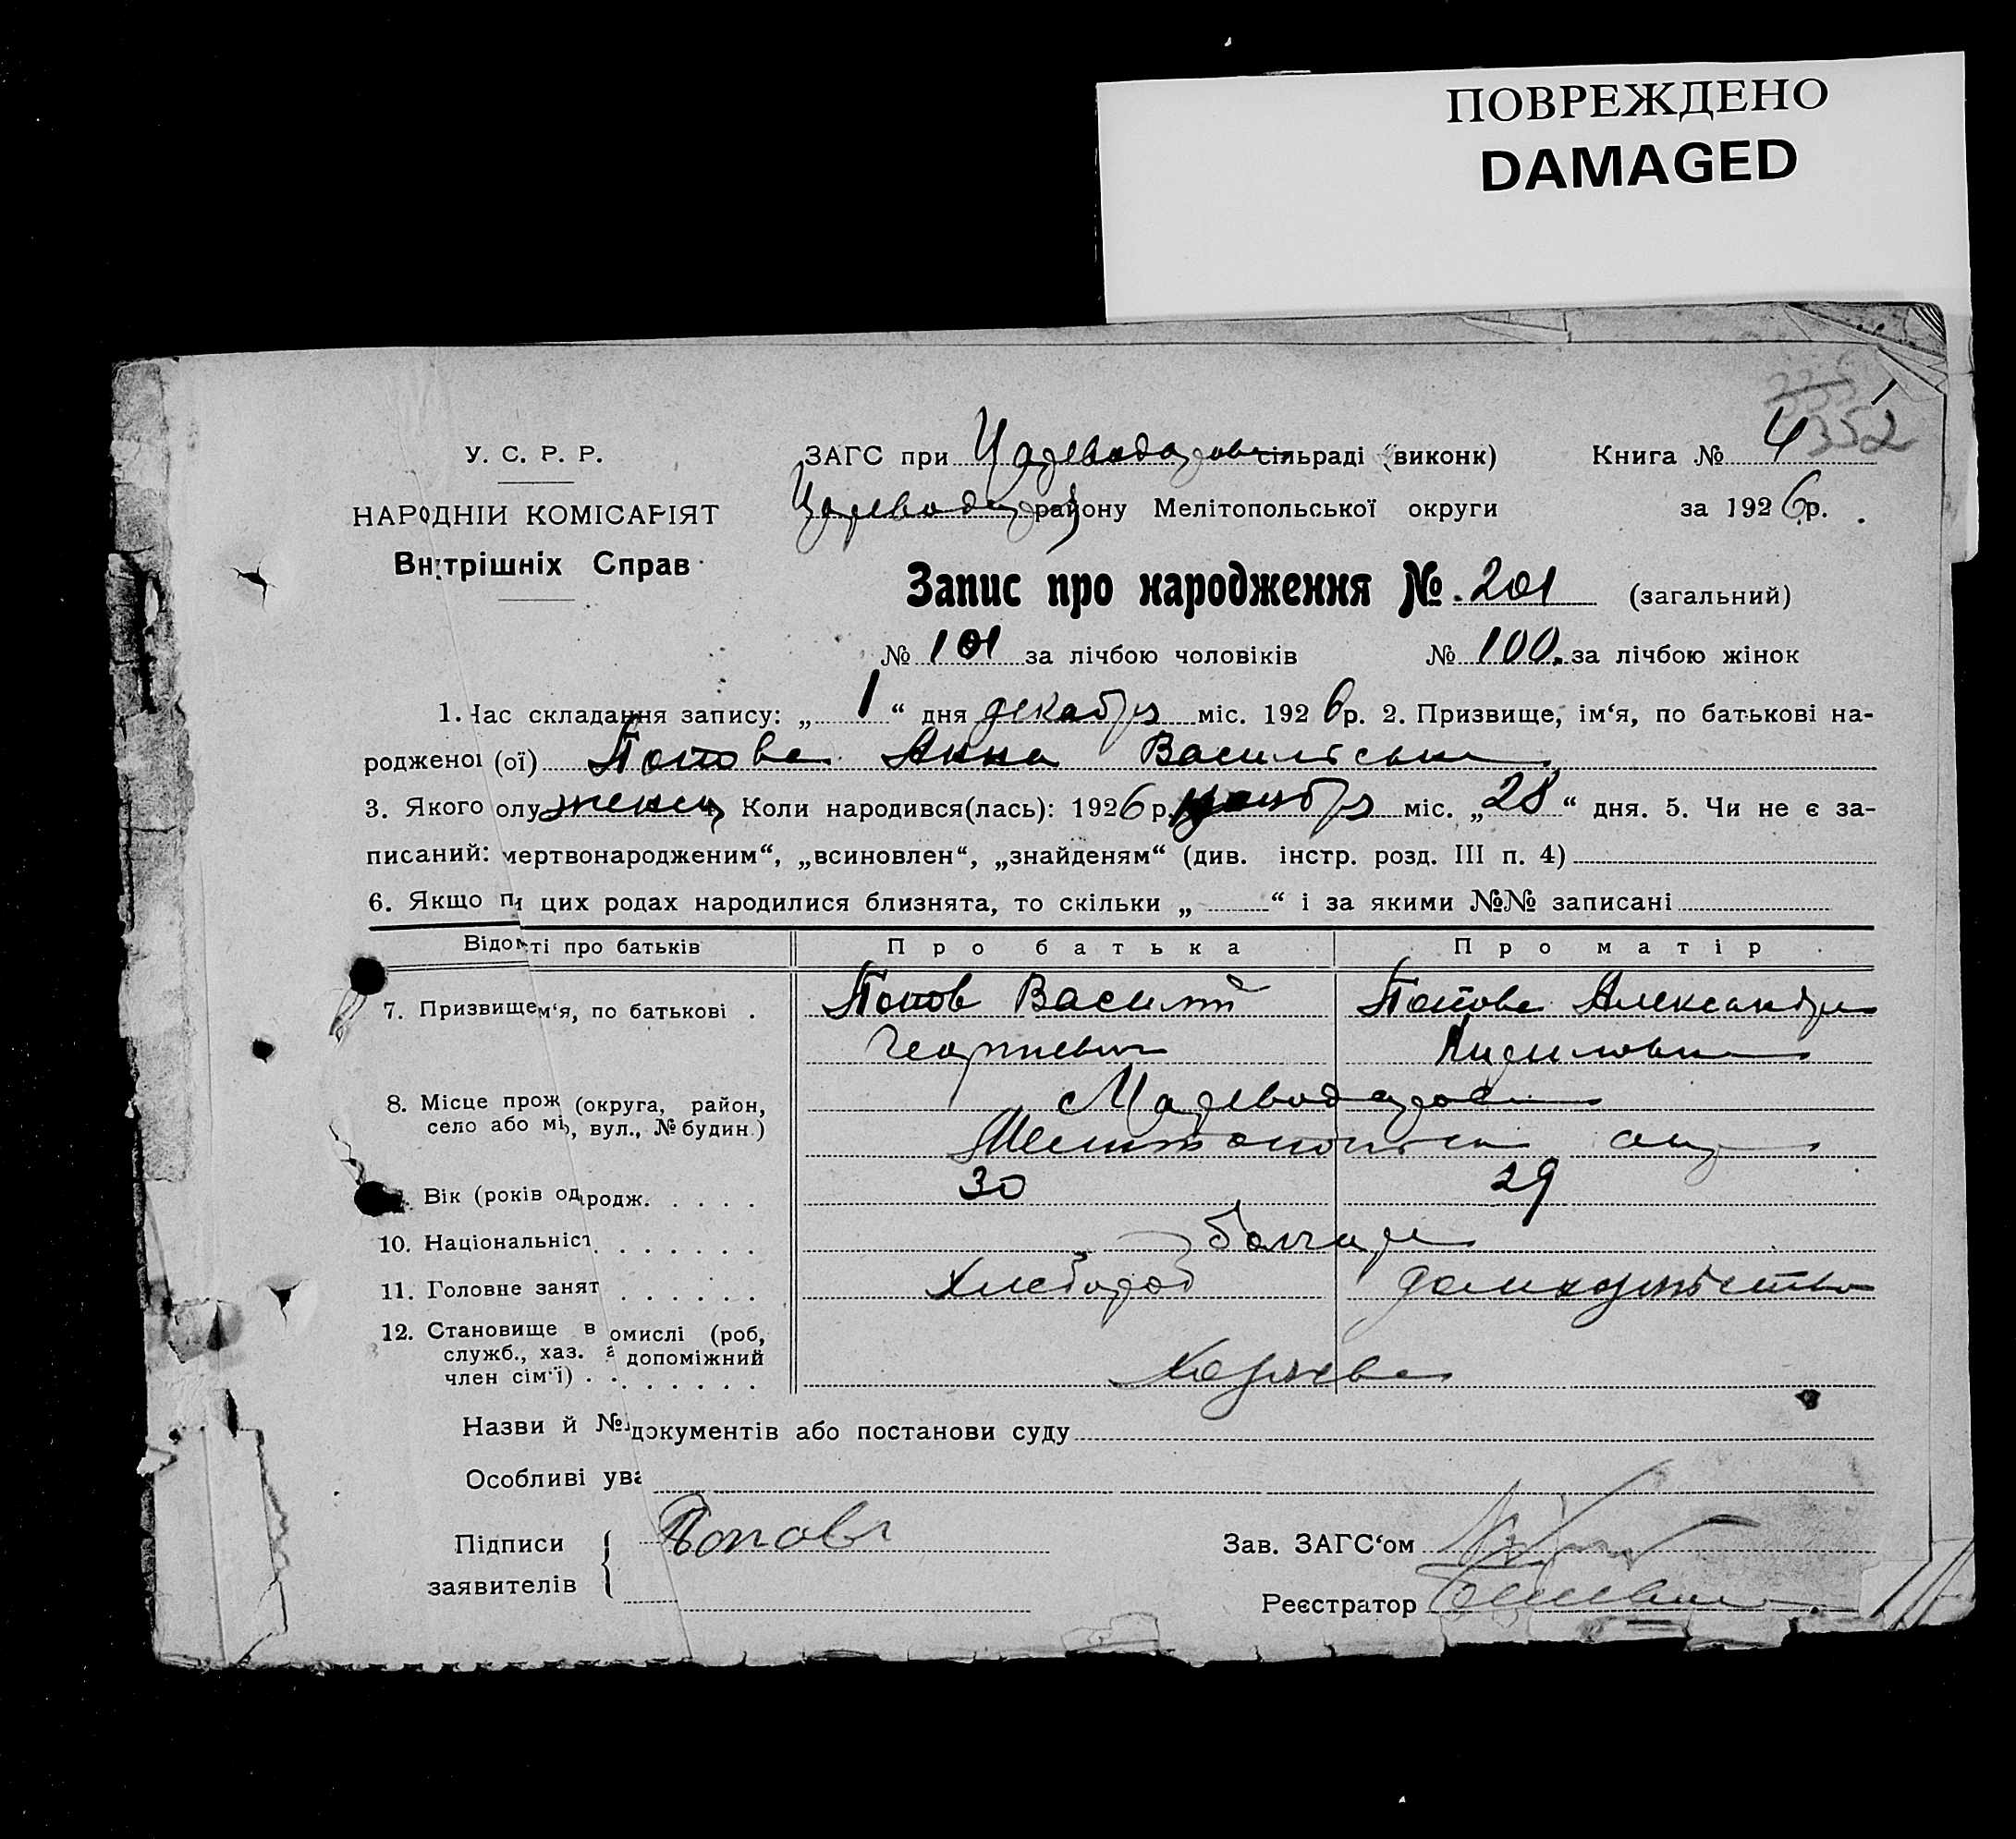 ПОВРЕЖДЕНО
DAMAGED
352
У. С. Р. Р.
НАРОДНІЙ КОМІСАРІЯТ
Внутрішніх Справ
ЗАГС при Царевода сільраді (виконк) Книга № 4
Царевода району Мелітопольської округи за 1926 р.
Запис про народження № 201 (загальний)
№ 101 за лічбою чоловіків № 100 за лічбою жінок
1. Час складання запису: „ 1 “ дня декабря міс. 1926 р. 2. Призвище, ім‘я, по батькові на-
родженої (ої) Попова Анна Васильевна
3. Якого полу женск 4. Коли народився(лась): 1926 р. ноября міс. „ 28 “ дня. 5. Чи не є за-
писаний: мертвонародженим“, „всиновлен“, „знайденям“ (див. інстр. розд. III п. 4)
6. Якщо при цих родах народилися близнята, то скільки „ “ і за якими №№ записані
Відомості про батьків Про батька Про матір
7. Призвище, ім‘я, по батькові . Попов Василий Попова Александра
Георгиевич Кириловна
8. Місце прож (округа, район,
село або мі, вул., № будин.)
Мелитопольск окр
Вік (років од народж. 30 29
10. Національніст болгари
11. Головне занят Хлебороб домохозяйство
12. Становище в промислі (роб,
служб., хаз. а допоміжний
член сім‘ї)
Назви й № документів або постанови суду
Особливі ува
Підписи Попов
заявителів
Зав. ЗАГС‘ом
Реєстратор